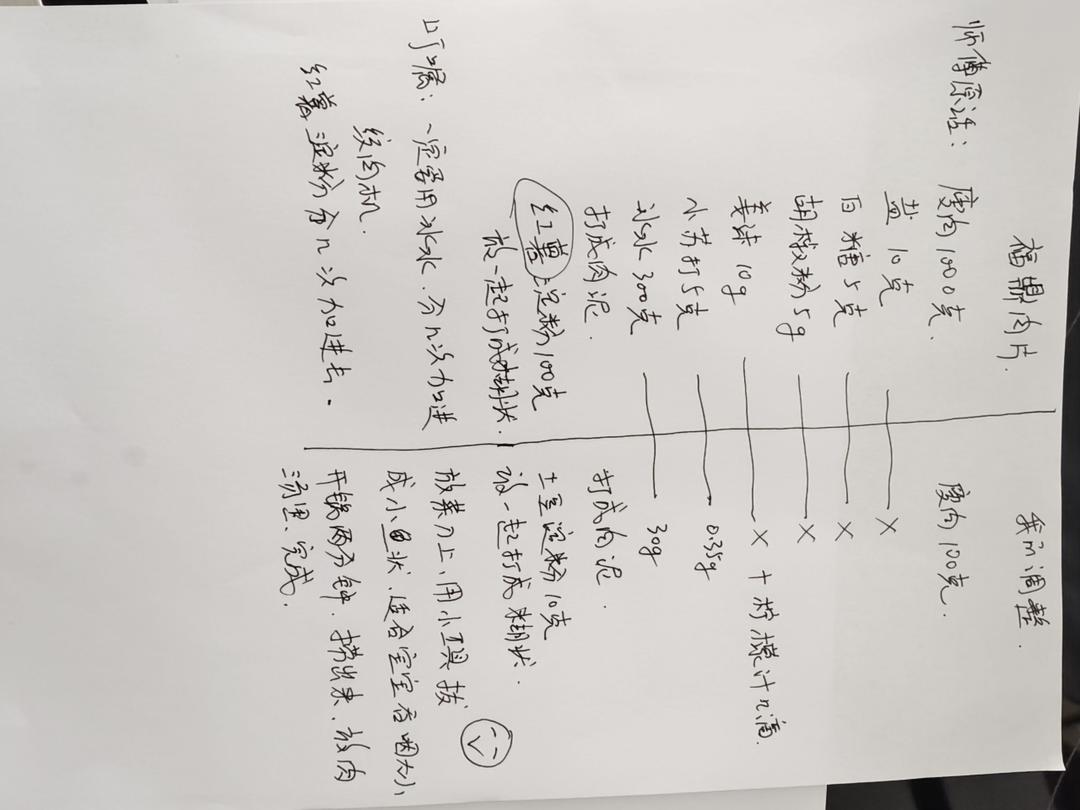 福鼎肉片
师傅原话：瘦肉1000克．
盐 10克
白糖5克
胡椒粉5g
姜沫 10g
小苏打5克
冰水300克
打成肉泥．
红薯淀粉100克
放一起打成糊状．
叮嘱：一定要用冰水．分n次加进
绞肉机．
红薯淀粉分n次加进去．
我的调整．
瘦肉100克．
×
×
×
× +柠檬汁n滴．
0.35g
30g
打成肉泥．
土豆淀粉10克
放一起打成糊状．
放菜刀上，用小工具拔
成小鱼状．适合宝宝吞咽大小，
开锅两分钟．捞出来．放肉
汤里．完成．